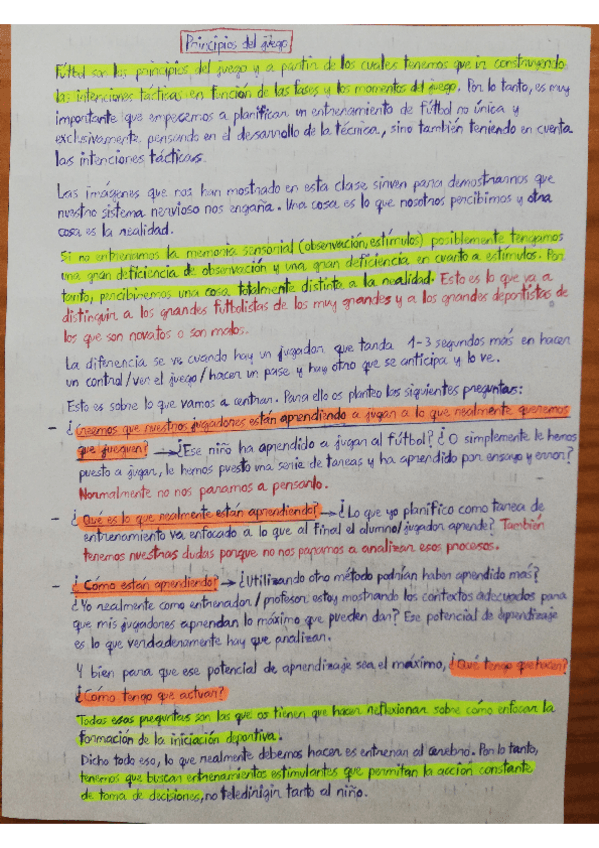 Principios del juego
Fútbol son los principios del juego y a partir de los cuales tenemos que ir construyendo
las intenciones tácticas en función de las fases y los momentos del juego. Por lo tanto, es muy
importante que empecemos a planificar un entrenamiento de fútbol no única y
exclusivamente pensando en el desarrollo de la técnica, sino también teniendo en cuenta
las intenciones tácticas.
Las imágenes que nos han mostrado en esta clase sirven para demostrarnos que
nuestro sistema nervioso nos engaña. Una cosa es lo que nosotros percibimos y otra
cosa es la realidad.
Si no entrenamos la memoria sensorial (observación, estímulos) posiblemente tengamos
una gran deficiencia de observación y una gran deficiencia en cuanto a estímulos. Por
tanto, percibiremos una cosa totalmente distinta a la realidad. Esto es lo que va a
distinguir a los grandes futbolistas de los muy grandes y a los grandes deportistas de
los que son novatos o son malos.
La diferencia se ve cuando hay un jugador que tarda 1-3 segundos más en hacer
un control/ver el juego/hacer un pase y hay otro que se anticipa y lo ve.
Esto es sobre lo que vamos a centrar. Para ello os planteo las siguientes preguntas:
- ¿Creemos que nuestros jugadores están aprendiendo a jugar a lo que realmente queremos
que jueguen? → ¿Ese niño ha aprendido a jugar al fútbol? ¿O simplemente le hemos
puesto a jugar, le hemos puesto una serie de tareas y ha aprendido por ensayo y error?
Normalmente no nos paramos a pensarlo.
- ¿Qué es lo que realmente están aprendiendo? → ¿Lo que yo planifico como tarea de
entrenamiento va enfocado a lo que al final el alumno/jugador aprende? También
tenemos nuestras dudas porque no nos paramos a analizar esos procesos.
- ¿Cómo están aprendiendo? → ¿Utilizando otro método podrían haber aprendido más?
¿Yo realmente como entrenador/profesor estoy mostrando los contextos adecuados para
que mis jugadores aprendan lo máximo que pueden dar? Ese potencial de aprendizaje
es lo que verdaderamente hay que analizar.
Y bien para que ese potencial de aprendizaje sea el máximo, ¿Qué tengo que hacer?
¿Cómo tengo que actuar?
Todas esas preguntas son las que os tienen que hacer reflexionar sobre cómo enfocar la
formación de la iniciación deportiva.
Dicho todo eso, lo que realmente debemos hacer es entrenar al cerebro. Por lo tanto,
tenemos que buscar entrenamientos estimulantes que permitan la acción constante
de toma de decisiones, no teledirigir tanto al niño.